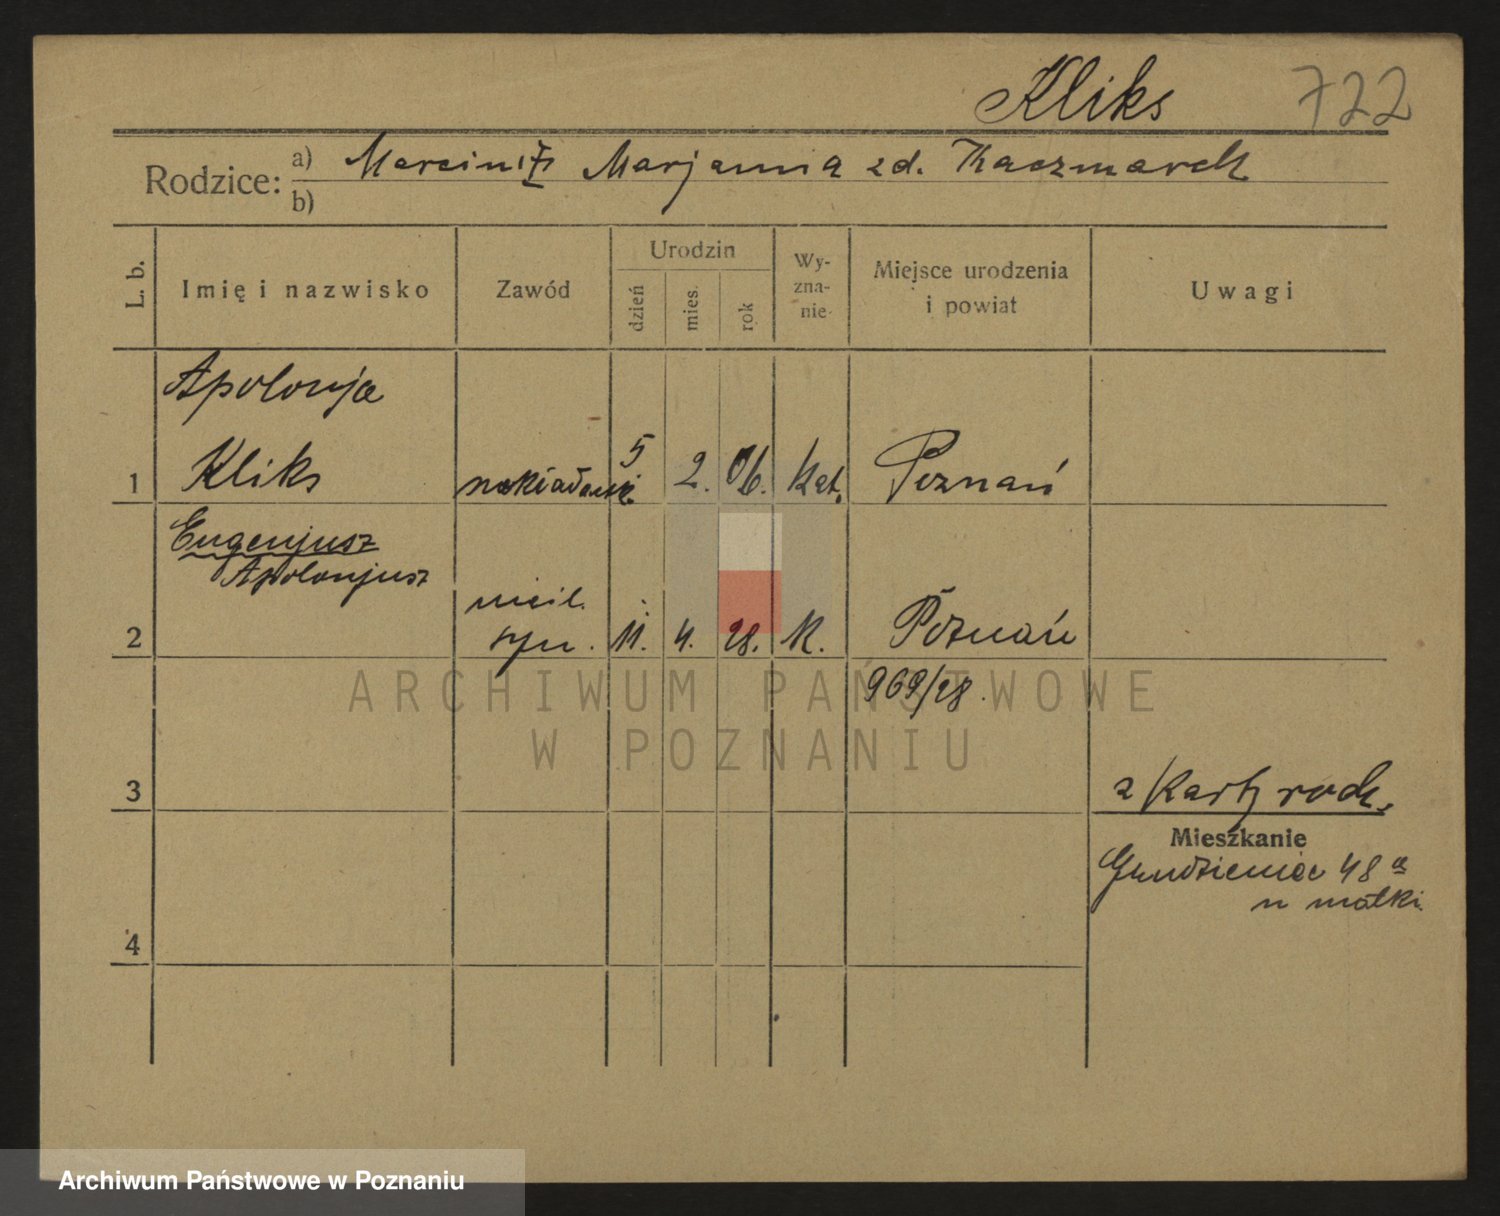 Kliks 722
Rodzice: a) Marcin i Marjanna zd. Kaczmarek
b)
L. b. Imię i nazwisko Zawód Urodzin dzień mies. rok Wy-zna-nie Miejsce urodzenia i powiat Uwagi
Apolonja
1 Kliks nakładaczk. 5 2. 06. kat. Poznań
Eugenjusz
Apolonjusz
nieśl.
2 syn. 11. 4. 28. k. Poznań
969/28.
ARCHIWUM PAŃSTWOWE
W POZNANIU
3 z karty rodz.
Mieszkanie
48a
u matki
4
Archiwum Państwowe w Poznaniu